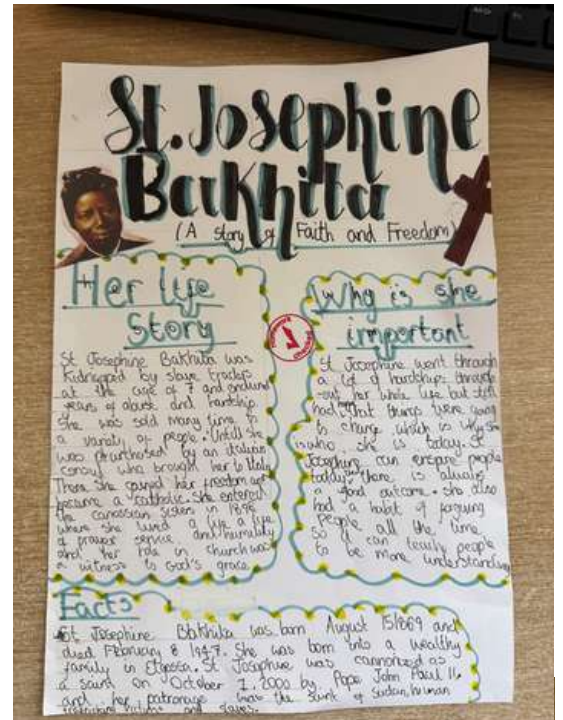 St. Josephine
Bakhita
(A story of Faith and Freedom)
Her life
Story
St Josephine Bakhita was
kidnapped by slave traders
at the age of 7 and endured
years of abuse and hardship
She was sold many time to
a variety of people. Untill she
was purchased by an italian
consul who brought her to Italy
There she gained her freedom and
became a catholic. She entered
the canossian sisters in 1896
where she lived a life a life
of prayer service and humility
and her role in church was
a witness to God's grace.
Why is she
important
St Josephine went through
a lot of hardships through
-out her whole life but still
had hope that things were going
to change which is why she
is who she is today. St
Josephine can enspire people
today there is always
a good outcome. she also
had a habit of forgiving
people all the time
so it can teach people
to be more understanding
Facts
St Josephine Bakhita was born August 15 1869 and
died February 8 1947. She was born into a wealthy
family in St Josephine was cannonized as
a saint on October 1, 2000 by Pope John Paul II
and her patronage was the saint of Sudan, human
and slaves.